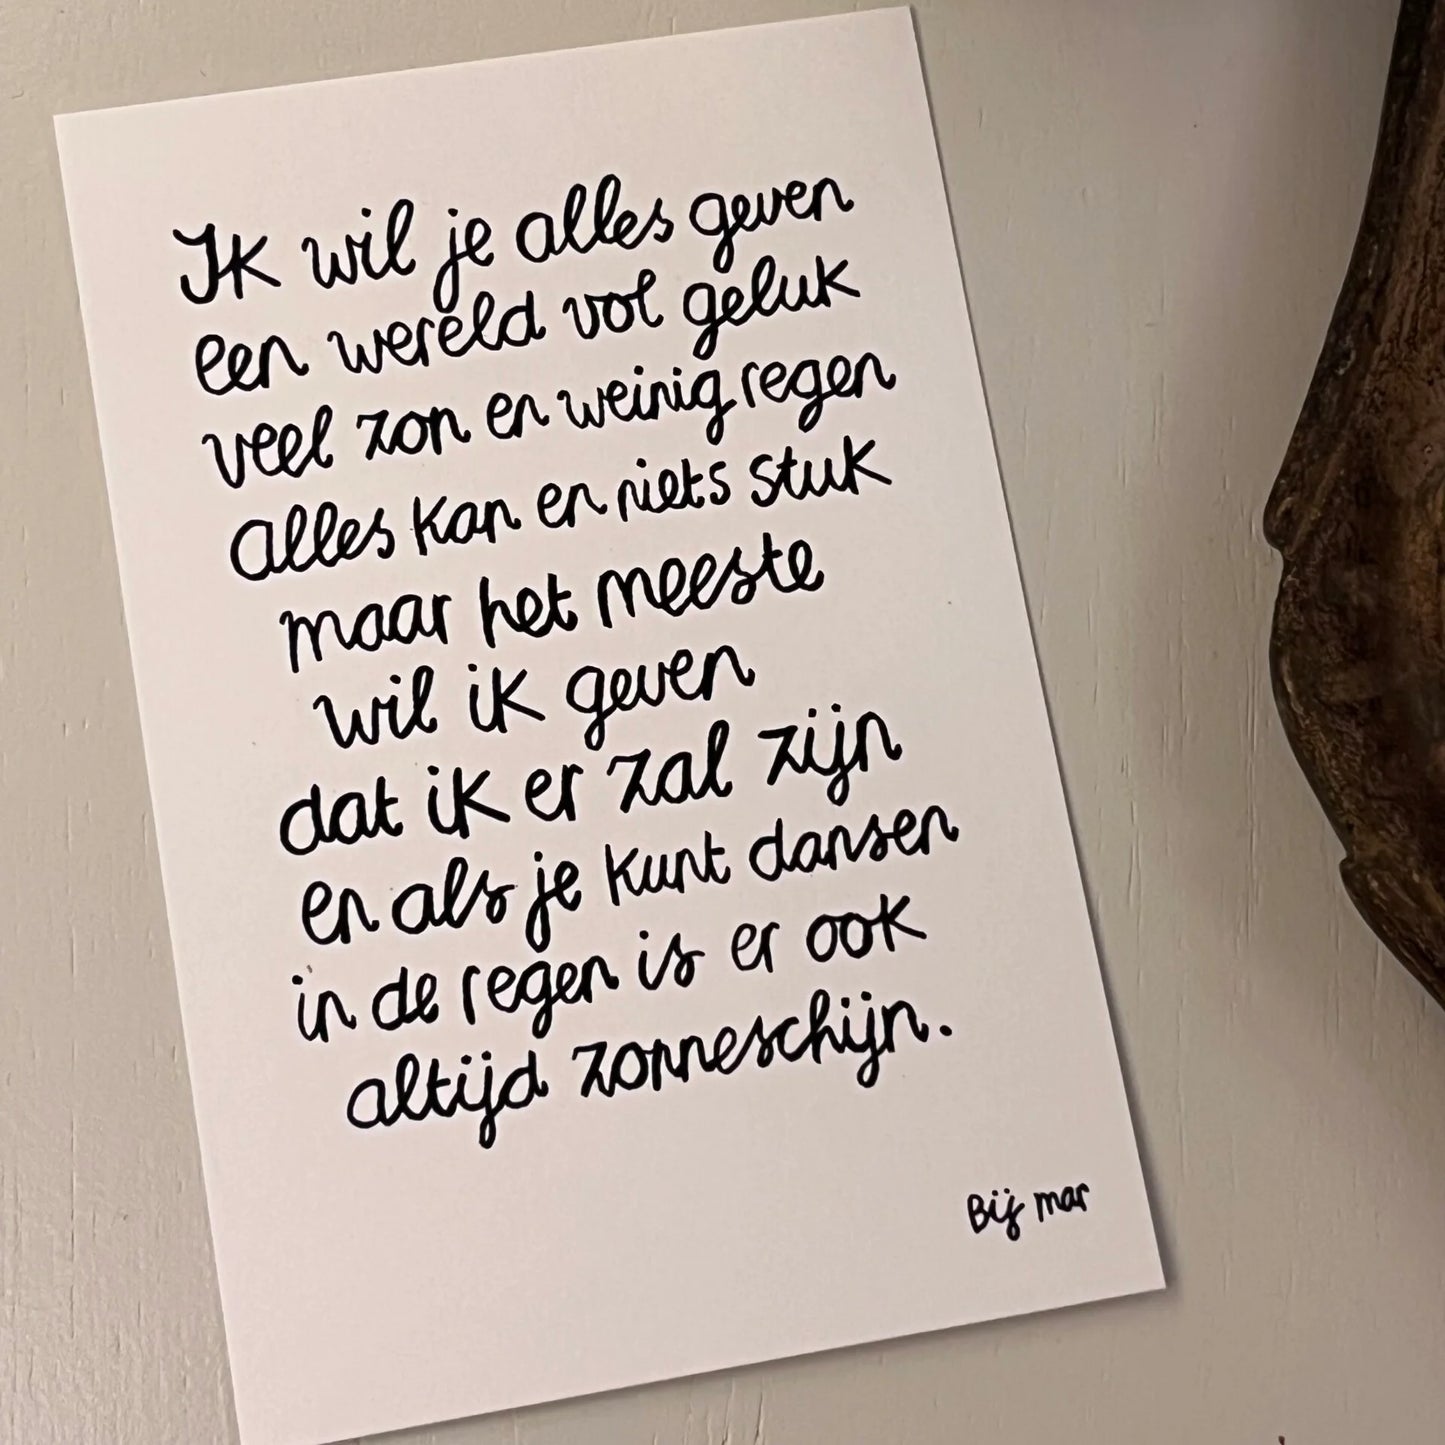 Ik wil je alles geven
een wereld vol geluk
veel zon en weinig regen
alles kan en niets stuk
maar het meeste
wil ik geven
dat ik er zal zijn
en als je kunt dansen
in de regen is er ook
altijd zonneschijn.
Bij mar